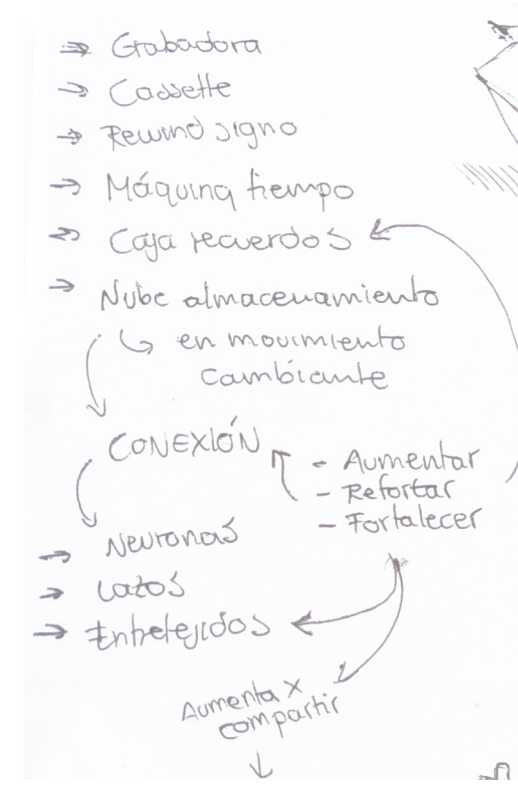 → Grabadora
→ Cassette
→ Rewind signo
→ Máquina tiempo
→ Caja recuerdos
→ Nube almacenamiento
↳ en movimiento
cambiante
CONEXIÓN
- Aumentar
- Refortar
- Fortalecer
→ Neuronas
→ Lazos
→ Entretejidos
Aumenta x
compartir
↓